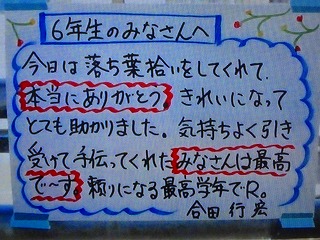 6年生のみなさんへ
今日は落ち葉拾いをしてくれて、
本当にありがとう きれいになって
とても助かりました。気持ちよく引き
受けて手伝ってくれたみなさんは最高
で〜す 頼りになる最高学年でR。
合田 行宏